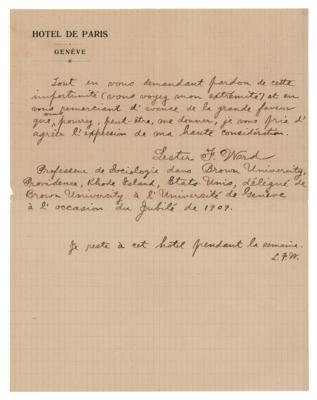 HOTEL DE PARIS
GENÈVE
Tout en vous demandant pardon de cette
importunité (vous voyez mon extrémité) et en
vous remerciant d'avance de la grande faveur
que, pourrez, peut-être, me donner, je vous prie d'
agréer l'expression de ma haute considération.
Lester F. Ward
Professeur de Sociologie dans Brown University,
Providence, Rhode Island, Etats Unis, délégué de
Brown University à l'Université de Genève
à l'occasion du Jubilé de 1909.
Je reste à cet hôtel pendant la semaine.
L.F.W.